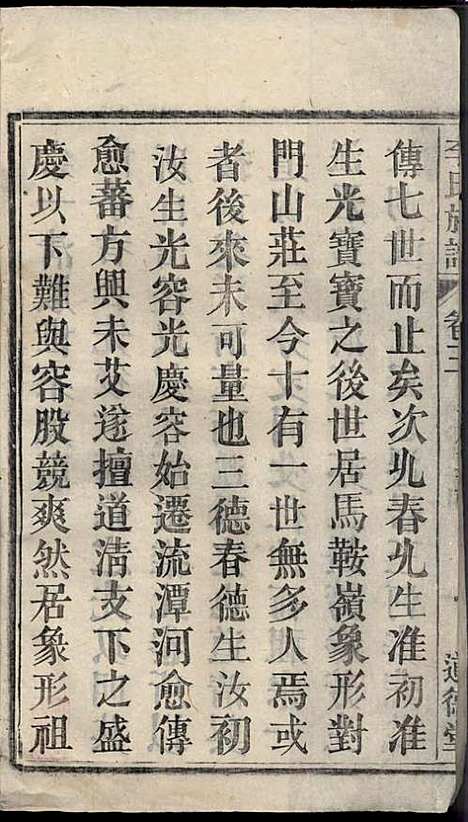 李氏族譜
卷三
道德堂
傳七世而止矣次乣春乣生准初准
生光寶寶之後世居馬鞍嶺象形對
門山莊至今十有一世無多人焉或
者後來未可量也三德春德生汝初
汝生光容光慶容始遷流潭河愈傳
愈蕃方興未艾遂擅道清支下之盛
慶以下難與容股競爽然居象形祖